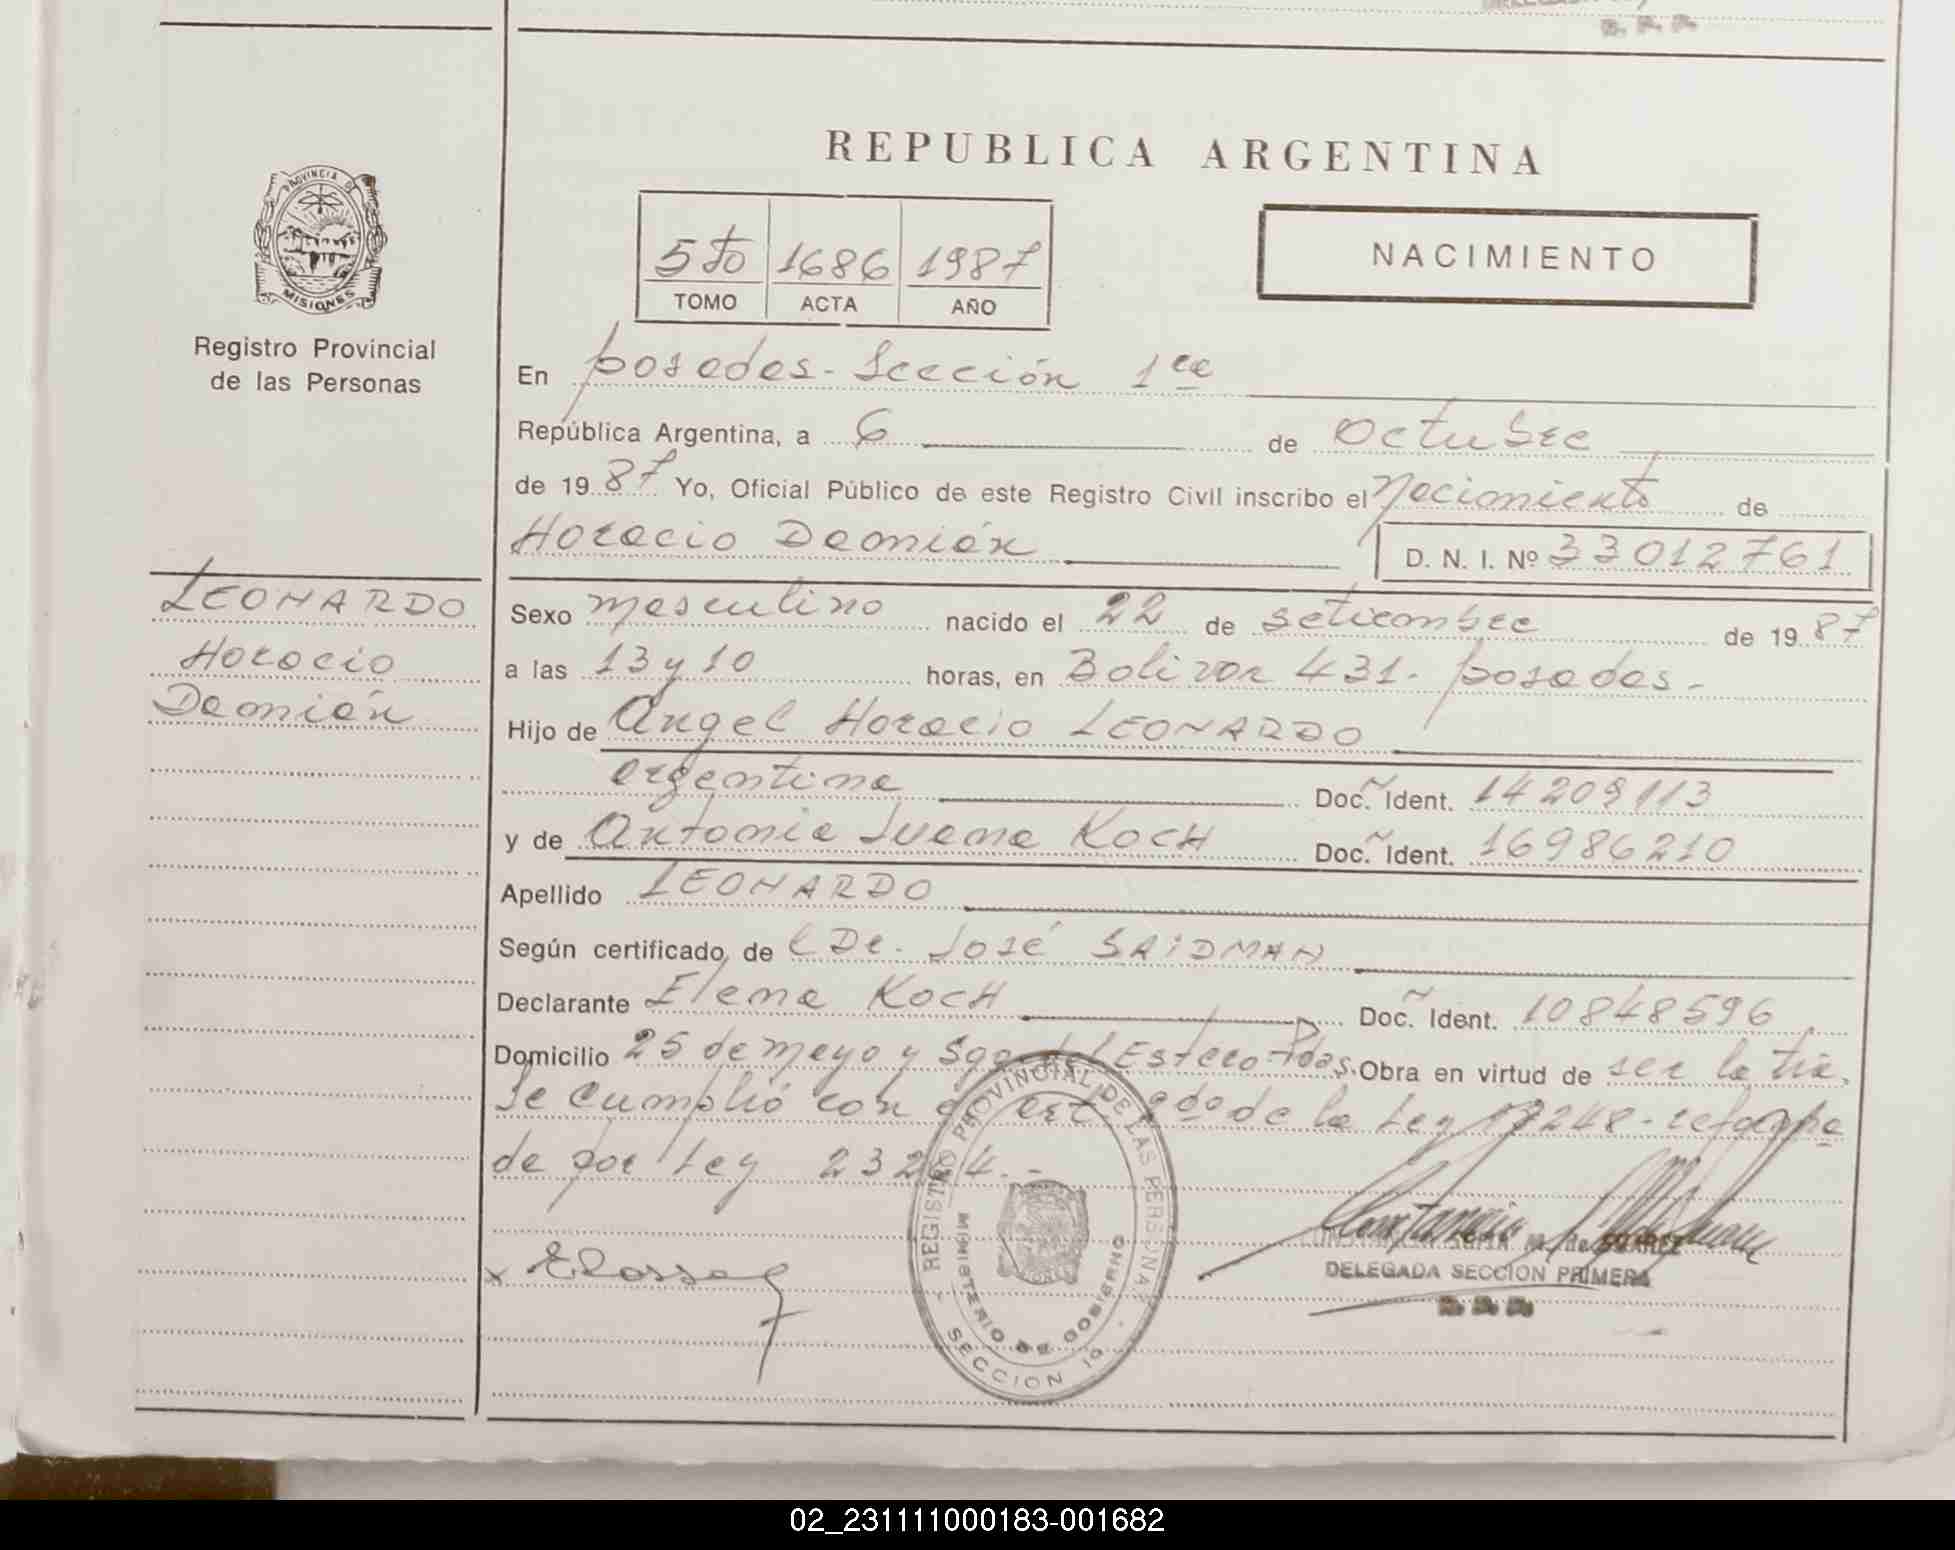 R. P. P.
REPUBLICA ARGENTINA
PROVINCIA DE
MISIONES
Registro Provincial
de las Personas
5to 1686 1987
TOMO ACTA AÑO
NACIMIENTO
En posadas - Sección 1ra
República Argentina, a 6 de octubre
de 1987 Yo, Oficial Público de este Registro Civil inscribo el Nacimiento de
Horacio Damián D. N. I. Nº 33012761
LEONARDO
Horacio
Damián
Sexo masculino nacido el 22 de setiembre de 1987
a las 13 y 10 horas, en Bolivar 431. posadas -
Hijo de Angel Horacio LEONARDO
argentina Doc. Ident. 14209113
y de Antonia Juana KOCH Doc. Ident. 16986210
Apellido LEONARDO
Según certificado de l Dr. José SAIDMAN
Declarante Elena KOCH Doc. Ident. 10848596
Domicilio 25 de mayo y Sgo del Estero - Pdas. Obra en virtud de ser la tia.
Se cumplió con el art 2do de la Ley 17248 - reforma
da por Ley 23264.-
REGISTRO PROVINCIAL DE LAS PERSONAS
MINISTERIO DE GOBIERNO
SECCION 1a
DE SUAREZ
DELEGADA SECCION PRIMERA
R. P. P.
02_231111000183-001682